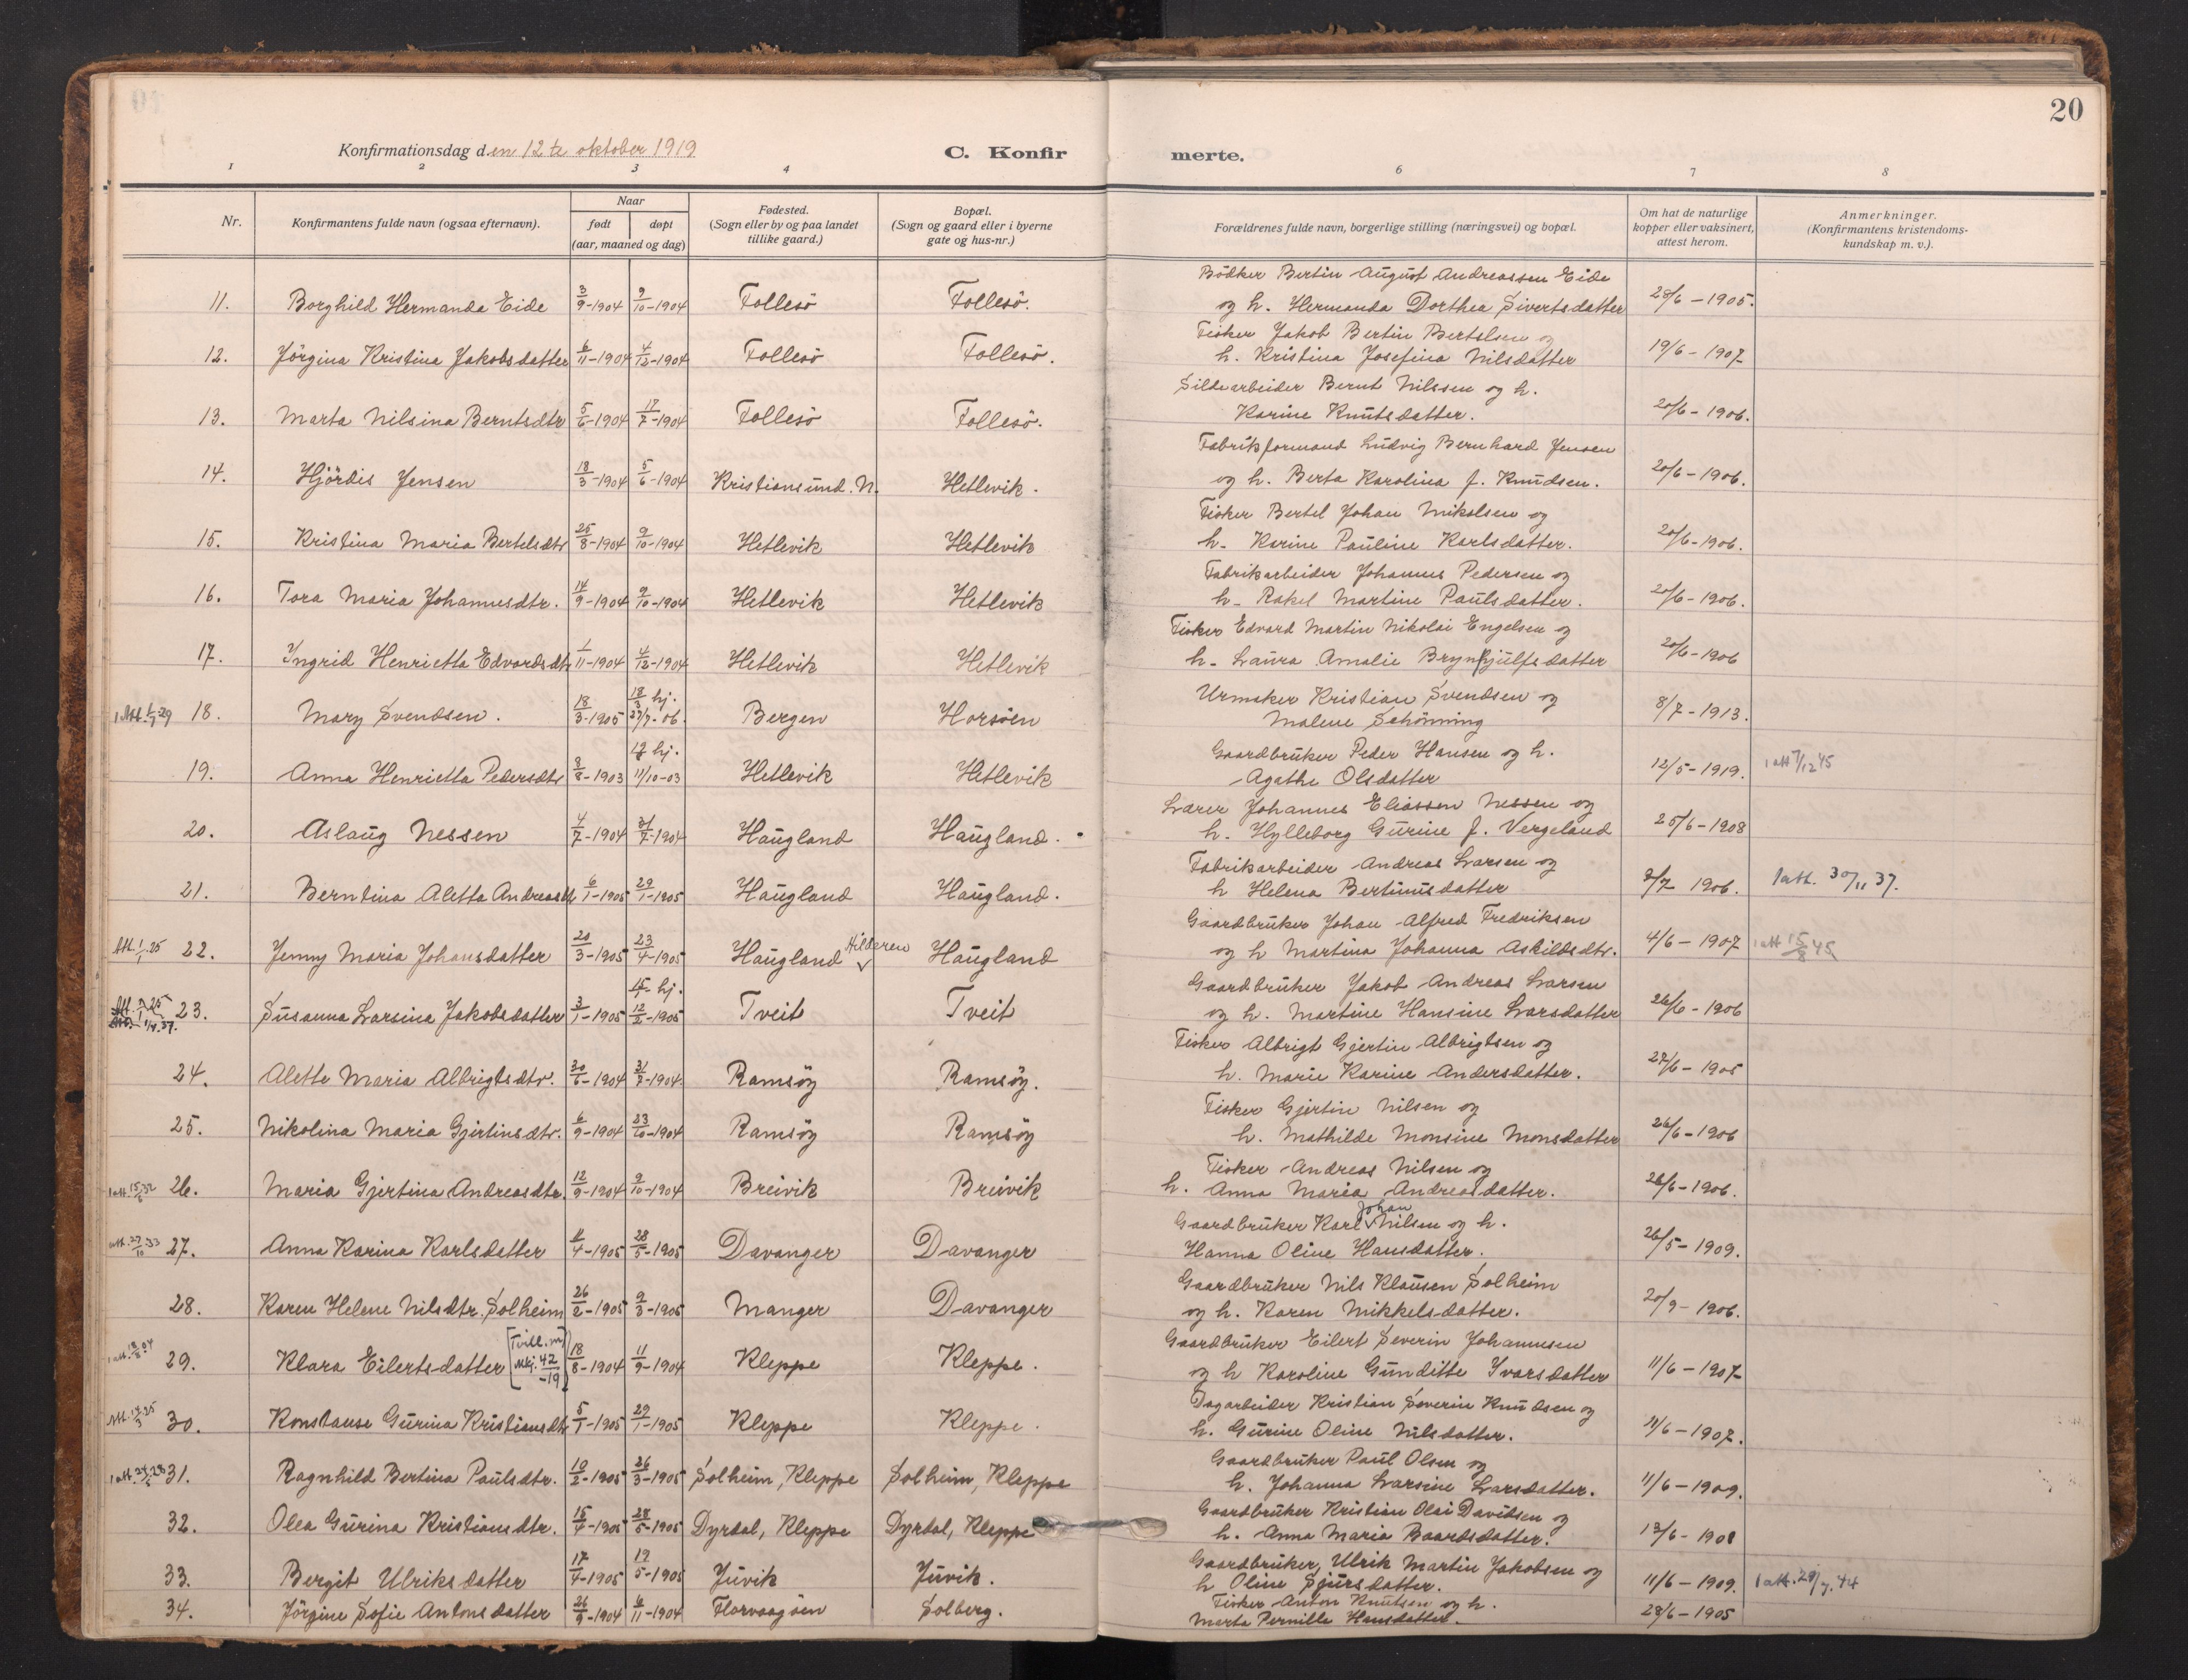 20
Konfirmationsdag den 12te oktober 1919
C. Konfir merte.
1 2 3 4 6 7 8
Nr. Konfirmantens fulde navn (ogsaa efternavn). Naar født døpt (aar, maaned og dag) Fødested. (Sogn eller by og paa landet tillike gaard.) Bopæl. (Sogn og gaard eller i byerne gate og hus-nr.) Forældrenes fulde navn, borgerlige stilling (næringsvei) og bopæl. Om hat de naturlige kopper eller vaksinert, attest herom. Anmerkninger. (Konfirmantens kristendomskundskap m. v.).
11. Borghild Hermanda Eide 3/9-1904 9/10-1904 Follesö Follesö. Bödker Bertin August Andreassen Eide
og h. Hermanda Dorthea Sivertsdatter 28/6-1905.
12. Jörgina Kristina Jakobsdatter 6/11-1904 4/12-1904 Follesö Follesö. Fisker Jakob Bertin Bertelsen og
h. Kristina Josefina Nilsdatter 19/6-1907
13. Marta Nilsina Berntsdtr 5/6-1904 17/7-1904 Follesö Follesö. Sildearbeider Bernt Nilssen og h.
Karine Knutsdatter. 20/6-1906.
14. Hjördis Jensen 18/3-1904 5/6-1904 Kristiansund. N. Hetlevik. Fabrikformand Ludvig Bernhard Jensen
og h. Berta Karolina f. Knudsen. 20/6-1906.
15. Kristina Maria Bertelsdtr 25/8-1904 9/10-1904 Hetlevik Hetlevik Fisker Bertel Johan Mikalsen og
h. Karine Pauline Karlsdatter. 20/6-1906.
16. Tora Maria Johannesdtr. 14/9-1904 9/10-1904 Hetlevik Hetlevik Fabrikarbeider Johannes Pedersen og
h. Rakel Martine Paulsdatter. 20/6-1906.
17. Ingrid Henrietta Edvardsdtr 1/11-1904 4/12-1904 Hetlevik Hetlevik Fisker Edvard Martin Nikolai Engelsen og
h. Laura Amalie Brynhjulfsdatter 20/6-1906
18. Mary Svendsen. 18/3-1905 18/3 hj. 27/7-06. Bergen Horsöen Urmaker Kristian Svendsen og
Malene Schönning 8/7-1913.
19. Anna Henrietta Pedersdtr 8/8-1903 hj. 11/10-03 Hetlevik Hetlevik Gaardbruker Peder Hansen og h.
Agathe Olsdatter 12/5-1919. 1 att 7/12 45
20. Aslaug Nessen 4/7-1904 31/7-1904 Haugland Haugland. Lærer Johannes Eliassen Nessen og
h. Hylleborg Gurine f. Vergeland 25/6-1908
21. Berntina Aletta Andreasdtr 6/1-1905 29/1-1905 Haugland Haugland. Fabrikarbeider Andreas Larsen og
h Helena Bertinusdatter 2/7 1906. 1 att. 30/11 37.
Att. 1/1 25 22. Jenny Maria Johansdatter 20/3-1905 23/4-1905 Haugland Hilderen Haugland Gaardbruker Johan Alfred Fredriksen
og h Martina Johanna Askildsdtr. 4/6-1907 1 att 15/8 45
23. Susanna Larsina Jakobsdatter 3/1-1905 hj. 12/2-1905 Tveit Tveit Gaardbruker Jakob Andreas Larsen
og h. Martine Hansine Larsdatter 26/6-1906
24. Alette Maria Albrigtsdtr. 30/6-1904 31/7-1904. Ramsöy Ramsöy. Fisker Albrigt Gjertin Albrigtsen og
h. Marie Karine Andersdatter. 27/6-1905
25. Nikolina Maria Gjertinsdtr. 6/9-1904 23/10-1904 Ramsöy Ramsöy Fisker Gjertin Nilsen og
h. Mathilde Monsine Monsdatter 26/6-1906
26. Maria Gjertina Andreasdtr. 12/9-1904 9/10-1904 Breivik Breivik Fisker Andreas Nilsen og
h. Anna Maria Andreasdatter. 26/6-1906.
att. 27/10 33 27. Anna Karina Karlsdatter 4-1905 28/5-1905 Davanger Davanger Gaardbruker Karl Johan Nilsen og h.
Hanna Oline Hansdatter. 26/5-1909.
28. Karen Helene Nilsdtr. Solheim 26/2-1905 9/3-1905 Manger Davanger Gaardbruker Nils Klausen Solheim
og h. Karen Mikkelsdatter. 20/9-1906.
29. Klara Eilertsdatter [Tvill. m. Mkj. 42 -19] 18/8-1904 11/9-1904 Kleppe Kleppe. Gaardbruker Eilert Severin Johannesen
og h Karoline Gunditte Ivarsdatter 11/6-1907
30. Konstanse Gurina Kristiansdtr 5/1-1905 29/1-1905 Kleppe Kleppe. Dagarbeider Kristian Severin Knudsen og
h. Gurine Oline Nilsdatter. 11/6-1907.
31. Ragnhild Bertina Paulsdtr. 10/2-1905 26/3-1905 Solheim, Kleppe Solheim, Kleppe Gaardbruker Paul Olsen og
h. Johanna Larsine Larsdatter. 11/6-1909.
32. Olea Gurina Kristiansdtr. 15/4-1905 28/5-1905 Dyrdal, Kleppe Dyrdal, Kleppe Gaardbruker Kristian Olai Davidsen og
h. Anna Maria Baardsdatter. 13/6-1908
33. Bergit Ulriksdatter 17/4-1905 19/5-1905 Juvik Juvik. Gaardbruker, Ulrik Martin Jakobsen og
h Oline Sjursdatter. 11/6-1909. 1 att. 29/7. 44
34. Jörgine Sofie Antonsdatter 26/9-1904 6/11-1904 Florvaagöen Solberg. Fisker Anton Knutsen og h.
Marta Pernille Hansdatter. 28/6-1905